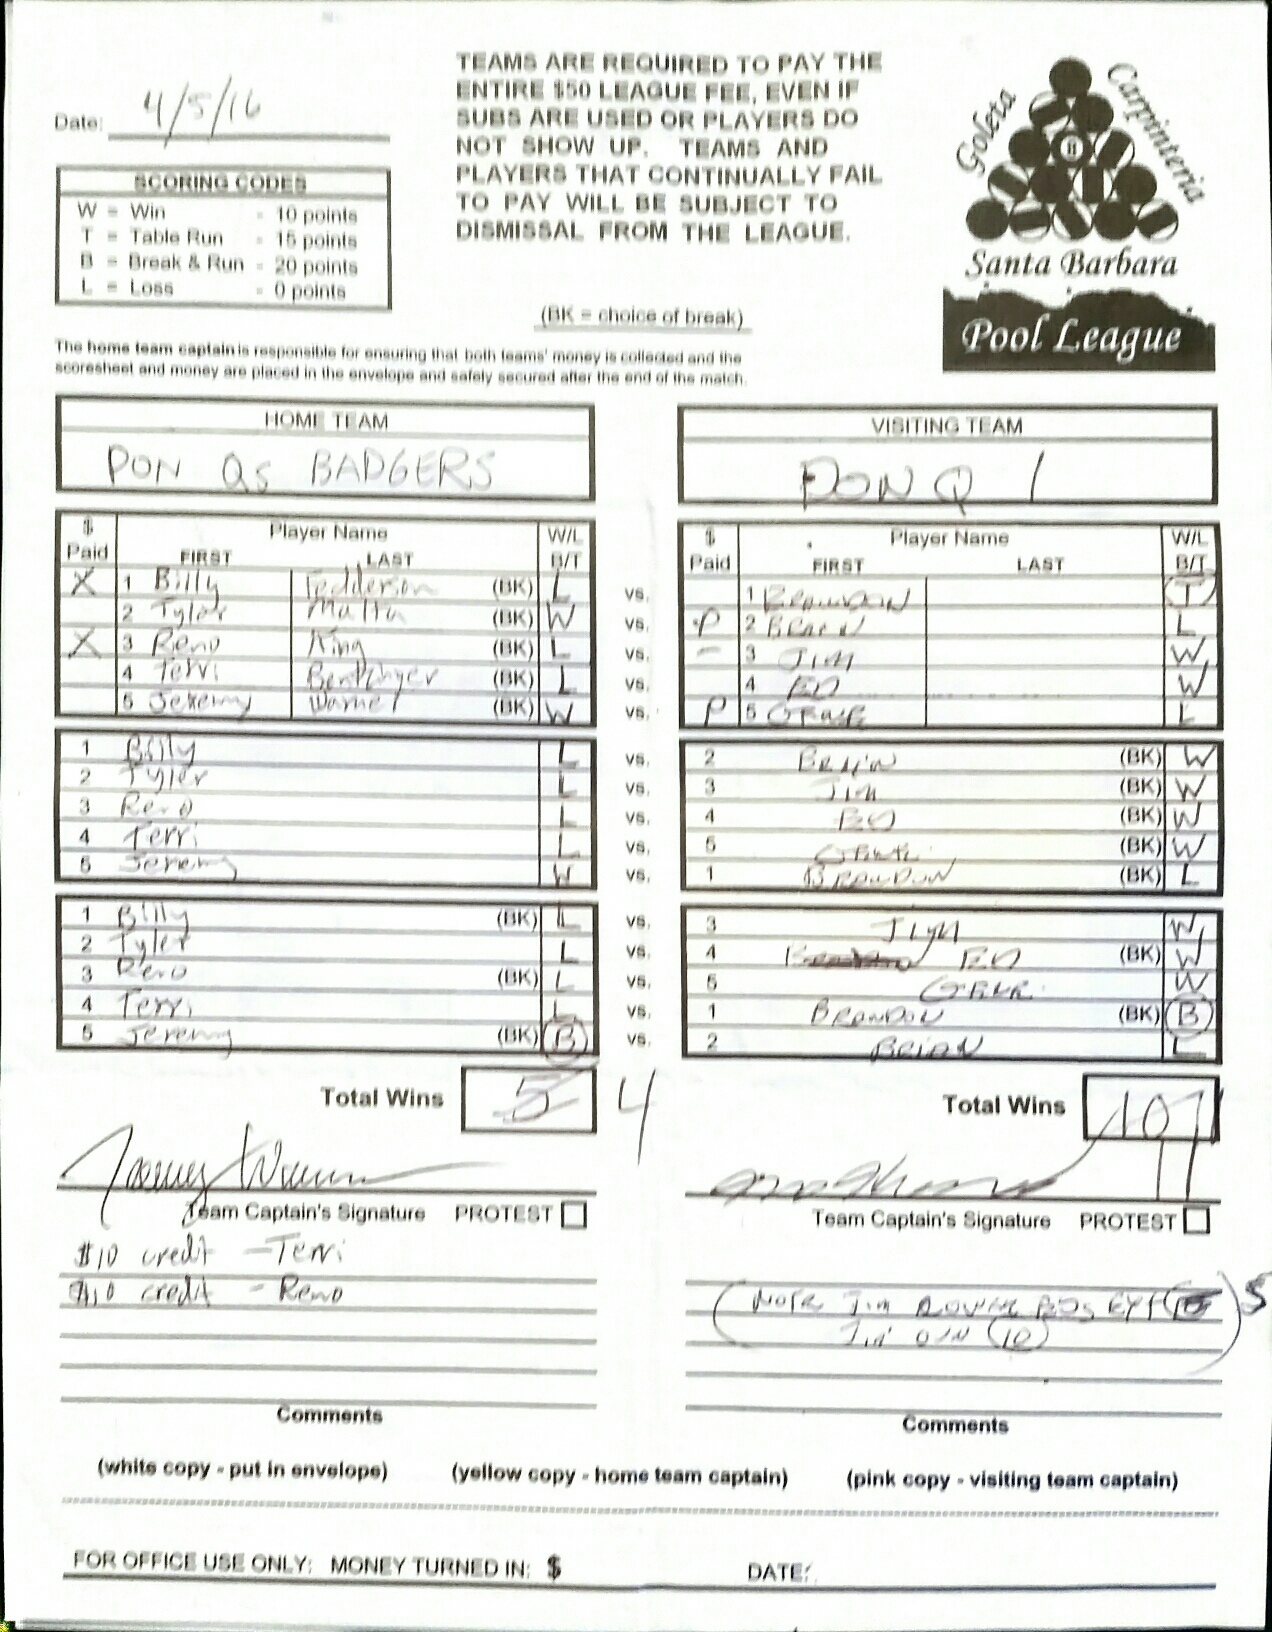 Date: 4/5/16
TEAMS ARE REQUIRED TO PAY THE
ENTIRE $50 LEAGUE FEE, EVEN IF
SUBS ARE USED OR PLAYERS DO
NOT SHOW UP. TEAMS AND
PLAYERS THAT CONTINUALLY FAIL
TO PAY WILL BE SUBJECT TO
DISMISSAL FROM THE LEAGUE.
Goleta
Carpinteria
8
Santa Barbara
Pool League
SCORING CODES
W = Win - 10 points
T = Table Run - 15 points
B = Break & Run - 20 points
L = Loss - 0 points
(BK = choice of break)
The home team captain is responsible for ensuring that both teams' money is collected and the
scoresheet and money are placed in the envelope and safely secured after the end of the match.
HOME TEAM
DON Qs BADGERS
VISITING TEAM
DON Q 1
$ Paid Player Name FIRST LAST W/L B/T
$ Paid Player Name FIRST LAST W/L B/T
X 1 Billy Fedderson (BK) L vs. 1 BRANDON T
2 Tyler Malta (BK) W vs. P 2 BRIAN L
X 3 Reno King (BK) L vs. - 3 JIM W
4 Terri (BK) L vs. 4 ED W
5 Jeremy Warner (BK) W vs. P 5 L
1 Billy L vs. 2 BRIAN (BK) W
2 Tyler L vs. 3 JIM (BK) W
3 Reno L vs. 4 ED (BK) W
4 Terri L vs. 5 (BK) W
5 Jeremy W vs. 1 BRANDON (BK) L
1 Billy (BK) L vs. 3 JIM W
2 Tyler L vs. 4 ED (BK) W
3 Reno (BK) L vs. 5 W
4 Terri L vs. 1 BRANDON (BK) B
5 Jeremy (BK) B vs. 2 BRIAN L
Total Wins 5 4
Total Wins 10 11
Team Captain's Signature PROTEST
Team Captain's Signature PROTEST
$10 credit - Terri
$10 credit - Reno
(NOTE JIM
JIM 10) 5
Comments
Comments
(white copy - put in envelope) (yellow copy - home team captain) (pink copy - visiting team captain)
FOR OFFICE USE ONLY: MONEY TURNED IN: $ DATE: